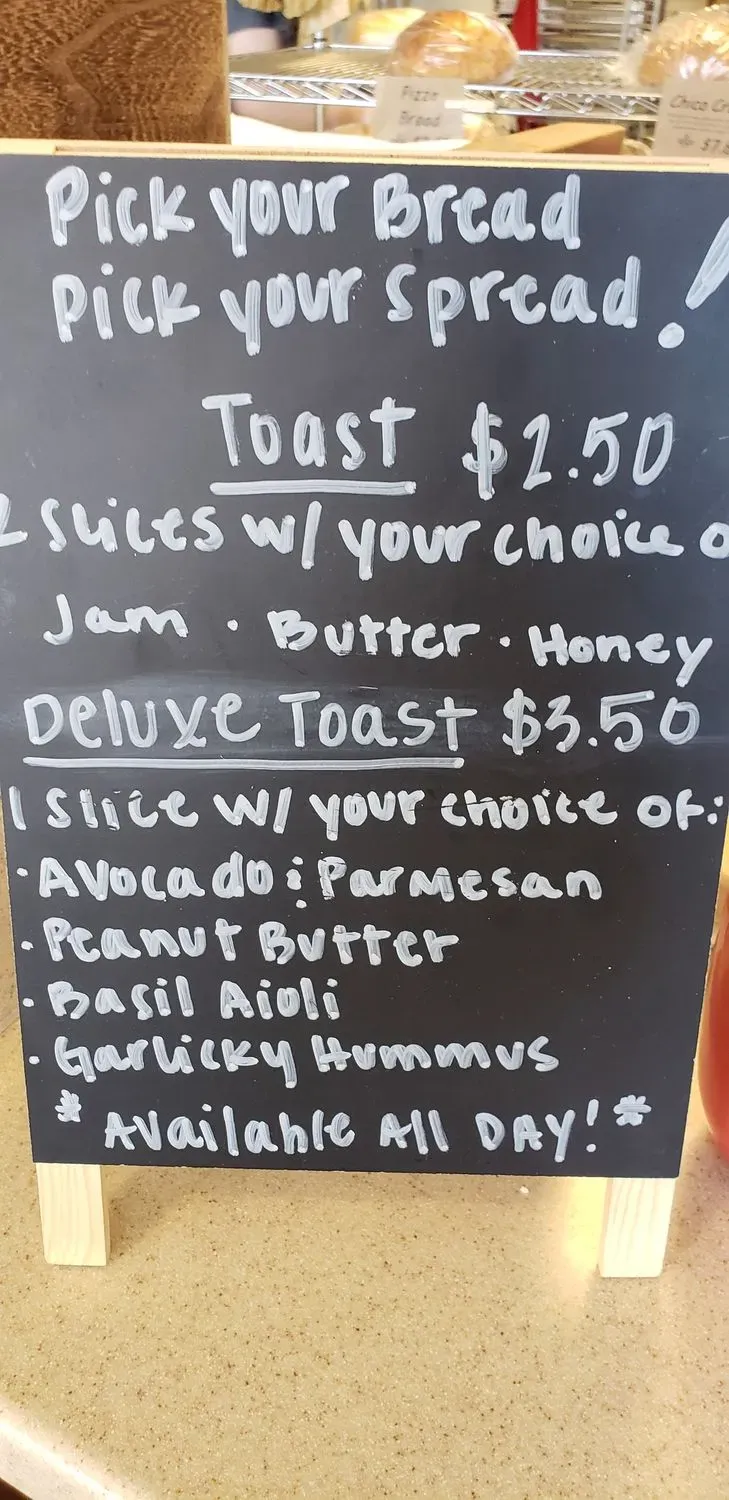 Pizza
Bread
Chico Cr
$7.
Pick your Bread
Pick your Spread!
Toast $2.50
2 Slices w/ your choice o
Jam · Butter · Honey
Deluxe Toast $3.50
1 slice w/ your choice of:
· Avocado & Parmesan
· Peanut Butter
· Basil Aioli
· Garlicky Hummus
* Available All DAY! *